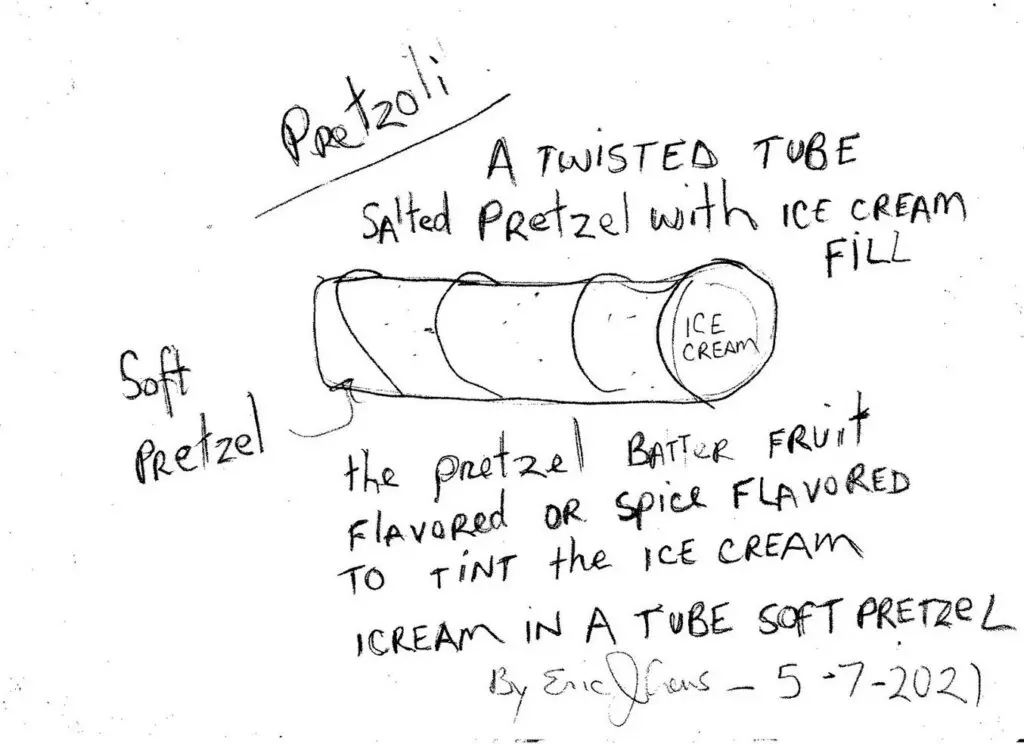 Pretzoli
A TWISTED TUBE
SAlted PRetzel with ICE CREAM
FILL
ICE
CREAM
Soft
PRetzel
the pretzel BATTeR FRUit
FlAVORed OR Spice FLAVORED
TO TINT the ICE CREAM
ICREAM IN A TUBE SOFT PRETZeL
By Eric J - 5-7-2021